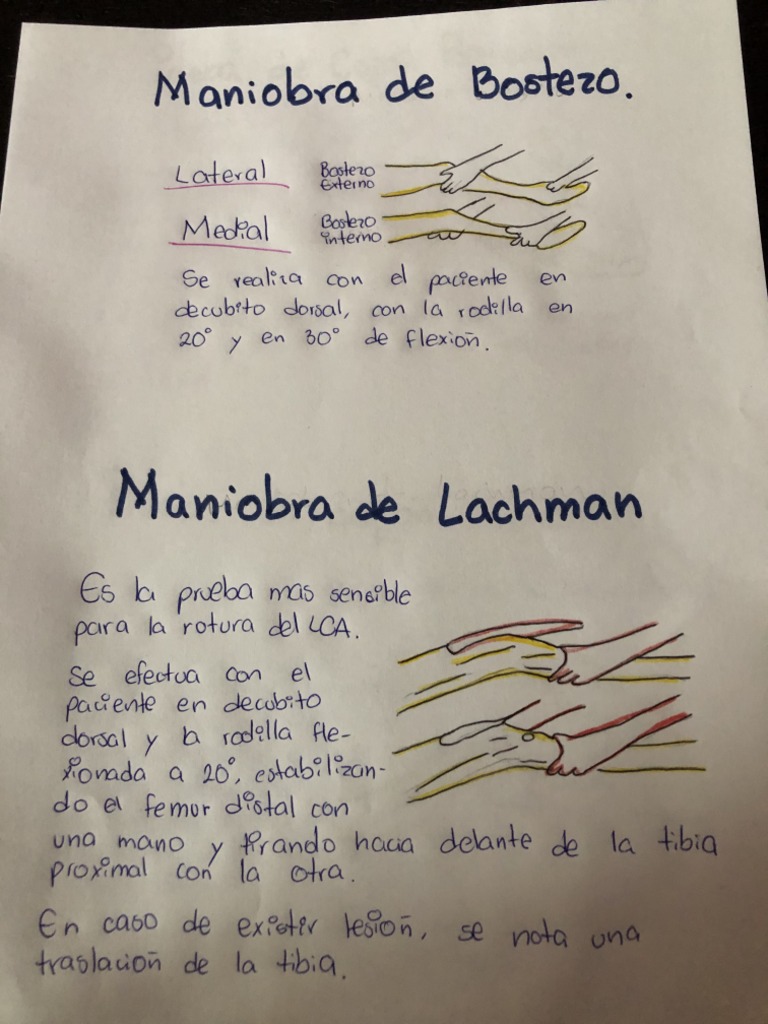 Maniobra de Bostezo.
Lateral
Bostezo
Externo
Medial
Bostezo
interno
Se realiza con el paciente en
decubito dorsal, con la rodilla en
20° y en 30° de flexión.
Maniobra de Lachman
Es la prueba mas sensible
para la rotura del LCA.
Se efectua con el
paciente en decubito
dorsal y la rodilla fle-
xionada a 20°, estabilizan-
do el femur distal con
una mano y tirando hacia delante de la tibia
proximal con la otra.
En caso de existir lesión, se nota una
traslación de la tibia.